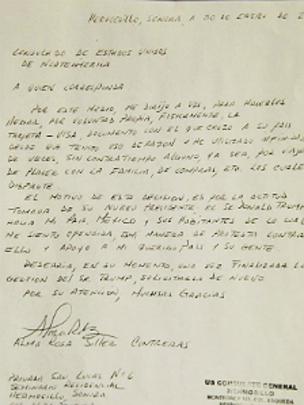 HERMOSILLO, SONORA, A 30 DE ENERO DE 2
CONSULADO DE ESTADOS UNIDOS
DE NORTEAMERICA
A QUIEN CORRESPONDA
POR ESTE MEDIO, ME DIRIJO A UDS, PARA HACERLES
LLEGAR, POR VOLUNTAD PROPIA, FISICAMENTE, LA
TARJETA - VISA, DOCUMENTO CON EL QUE CRUZO A SU PAIS
DESDE QUE TENGO USO DE RAZON Y HE UTILIZADO
DE VECES, SIN CONTRATIEMPO ALGUNO, YA SEA, POR VIAJES
DE PLACER CON LA FAMILIA, DE COMPRAS, ETC. LOS CUALES
DISFRUTE.
EL MOTIVO DE ESTA DECISION, ES POR LA ACTITUD
TOMADA DE SU NUEVO PRESIDENTE EL SR DONALD TRUMP
HACIA MI PAIS, MEXICO Y SUS HABITANTES DE LO CUAL
ME SIENTO OFENDIDA, UNA MANERA DE PROTESTA CONTRA
ELLO Y APOYO A MI QUERIDO PAIS Y SU GENTE
DESEARIA, EN SU MOMENTO, UNA VEZ FINALIZADA LA
GESTION DEL SR. TRUMP, SOLICITARLA DE NUEVO
POR SU ATENCION, MUCHAS GRACIAS
ALMA ROSA SILLER CONTRERAS
PRIVADA SAN LUCAS Nº 6
SEMINARIO RESIDENCIAL
HERMOSILLO, SONORA
US CONSULATE GENERAL
HERMOSILLO